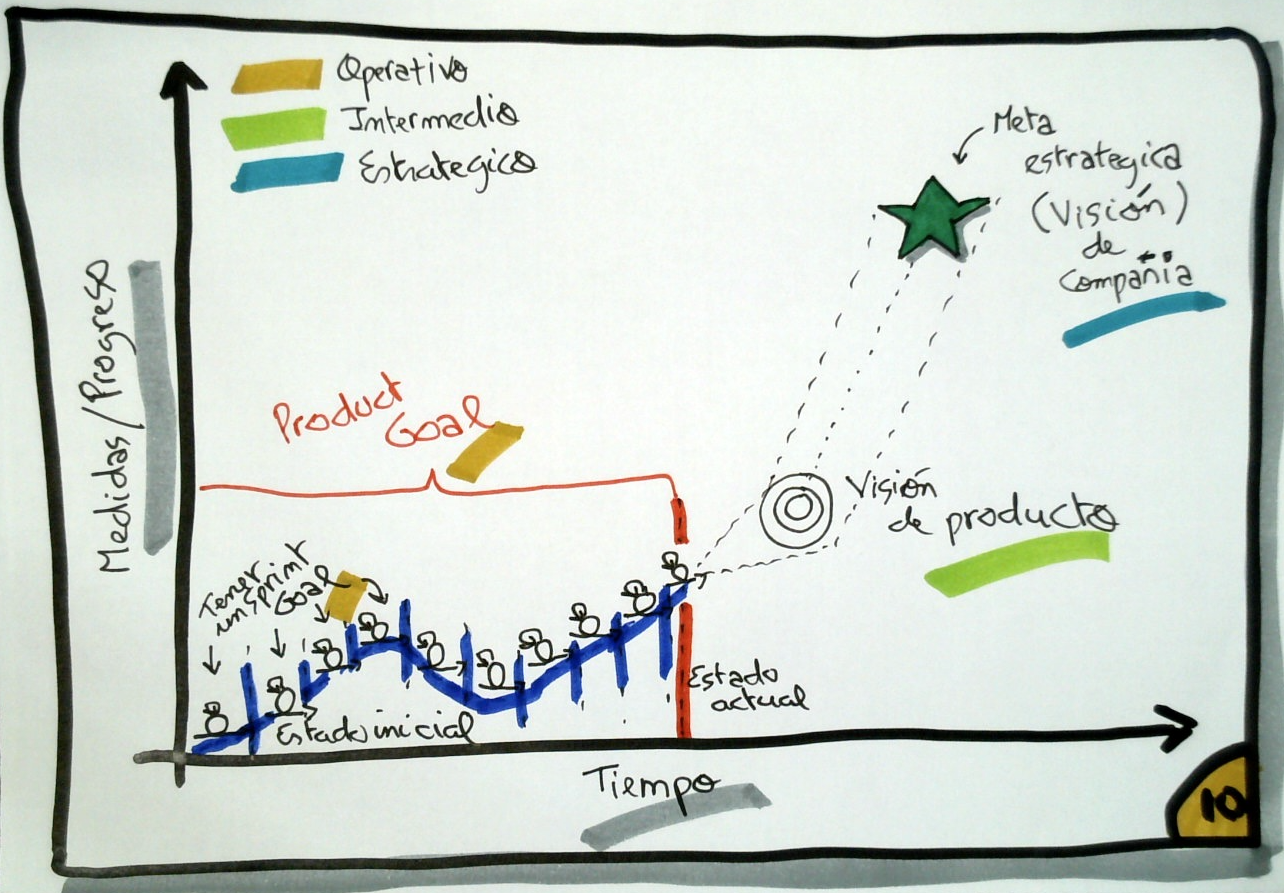 Operativo
Intermedio
Estrategico
Meta
estrategica
(Visión)
de
Compañia
Medidas/Progreso
Product
Goal
Visión
de producto
Tener
un Sprint
Goal
Estado inicial
Estado
actual
Tiempo
10